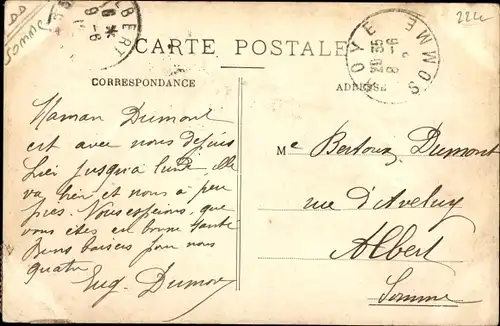 DD
Somme
BERT
* 9-6
224
ROYE
SOMME
CARTE POSTALE
CORRESPONDANCE
ADRESSE
Maman Dumont
est avec nous depuis
hier jusqu'à lundi, elle
va bien et nous à peu
près. Nous espérons, que
vous êtes en bonne santé
Bons baisers pour vous
quatre
Eug. Dumont
Me Bertoux, Dumont
rue d'Aveluy
Albert
Somme